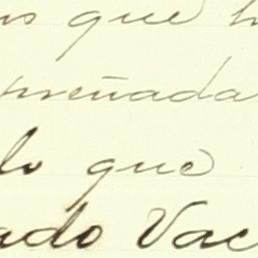 que
preñada
lo que
ado Vac